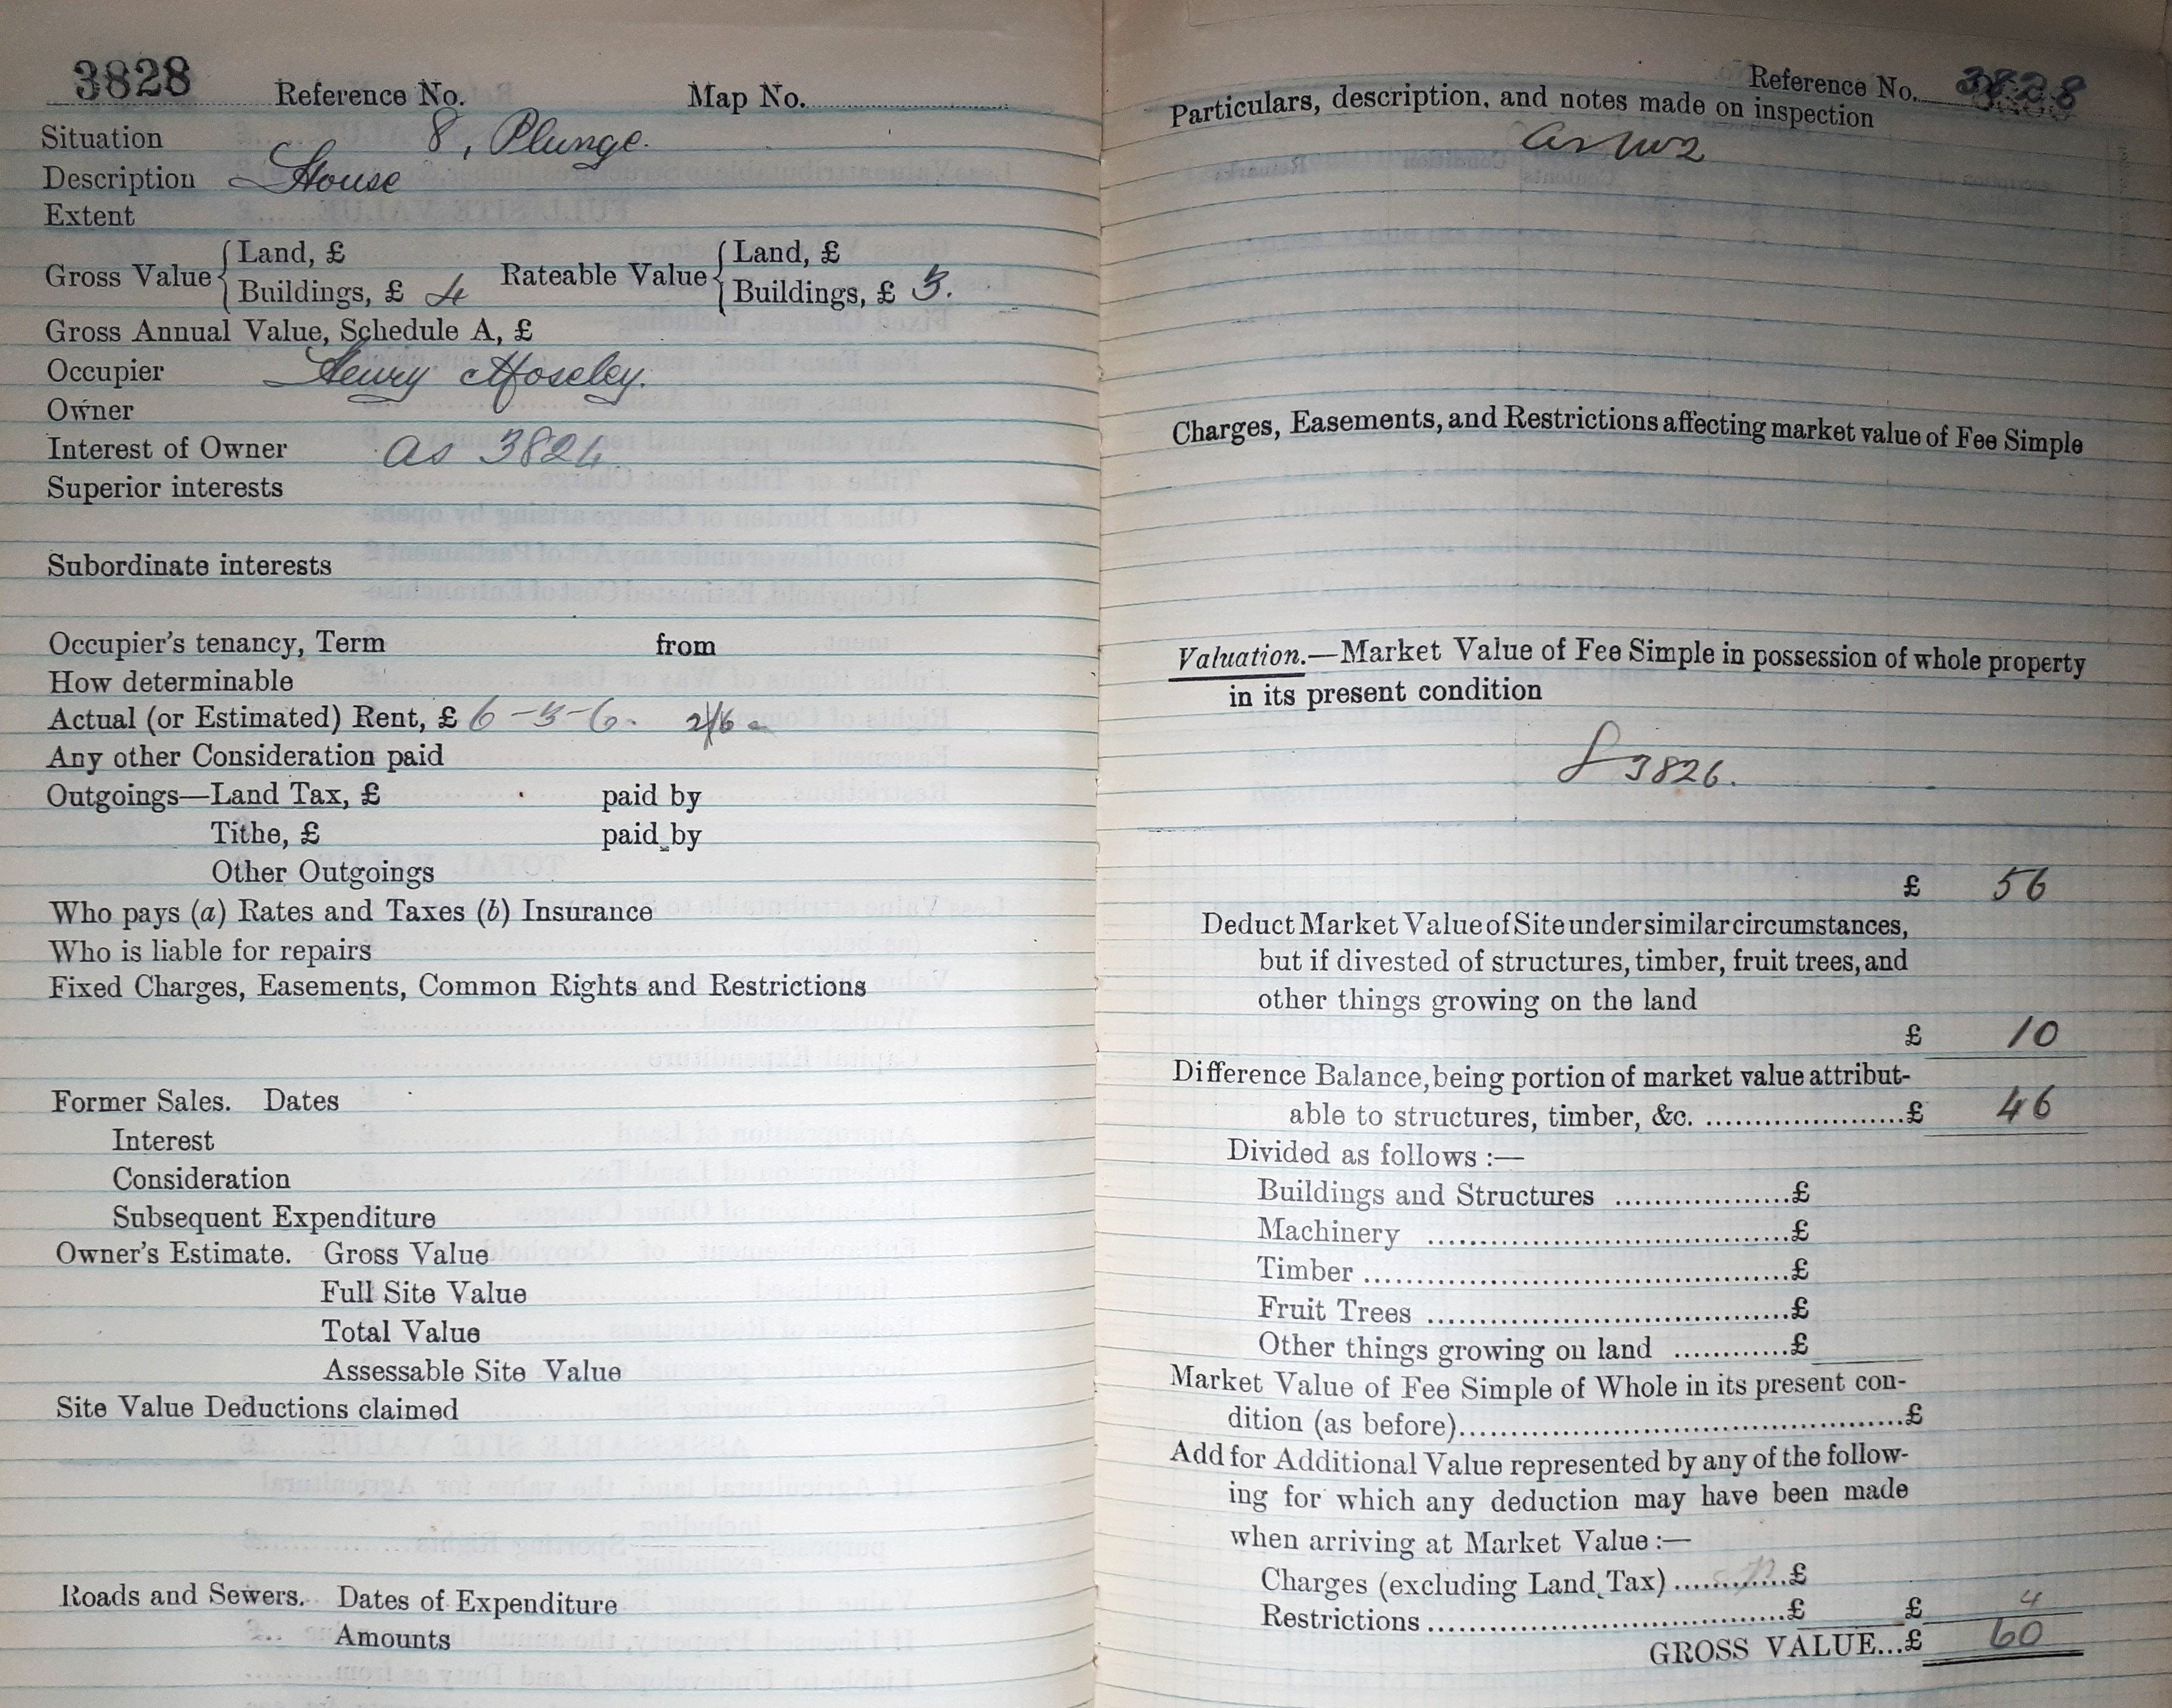 3828 Reference No. Map No.
Situation 8, Plunge.
Description House
Extent
Gross Value { Land, £ Rateable Value { Land, £
Buildings, £ 4 Buildings, £ 3.
Gross Annual Value, Schedule A, £
Occupier Henry Moseley.
Owner
Interest of Owner as 3824
Superior interests
Subordinate interests
Occupier's tenancy, Term from
How determinable
Actual (or Estimated) Rent, £ 6-3-6. 2/6
Any other Consideration paid
Outgoings—Land Tax, £ paid by
Tithe, £ paid by
Other Outgoings
Who pays (a) Rates and Taxes (b) Insurance
Who is liable for repairs
Fixed Charges, Easements, Common Rights and Restrictions
Former Sales. Dates
Interest
Consideration
Subsequent Expenditure
Owner's Estimate. Gross Value
Full Site Value
Total Value
Assessable Site Value
Site Value Deductions claimed
Roads and Sewers. Dates of Expenditure
Amounts
Reference No. 3828
Particulars, description, and notes made on inspection
as
Charges, Easements, and Restrictions affecting market value of Fee Simple
Valuation.—Market Value of Fee Simple in possession of whole property
in its present condition
3826.
£ 56
Deduct Market Value of Site under similar circumstances,
but if divested of structures, timber, fruit trees, and
other things growing on the land
£ 10
Difference Balance, being portion of market value attribut-
able to structures, timber, &c. ....................£ 46
Divided as follows :—
Buildings and Structures ..................£
Machinery .....................................£
Timber ...........................................£
Fruit Trees .....................................£
Other things growing on land ............£
Market Value of Fee Simple of Whole in its present con-
dition (as before).............................................£
Add for Additional Value represented by any of the follow-
ing for which any deduction may have been made
when arriving at Market Value :—
Charges (excluding Land Tax) ............£
Restrictions .....................................£ £ 4
GROSS VALUE...£ 60